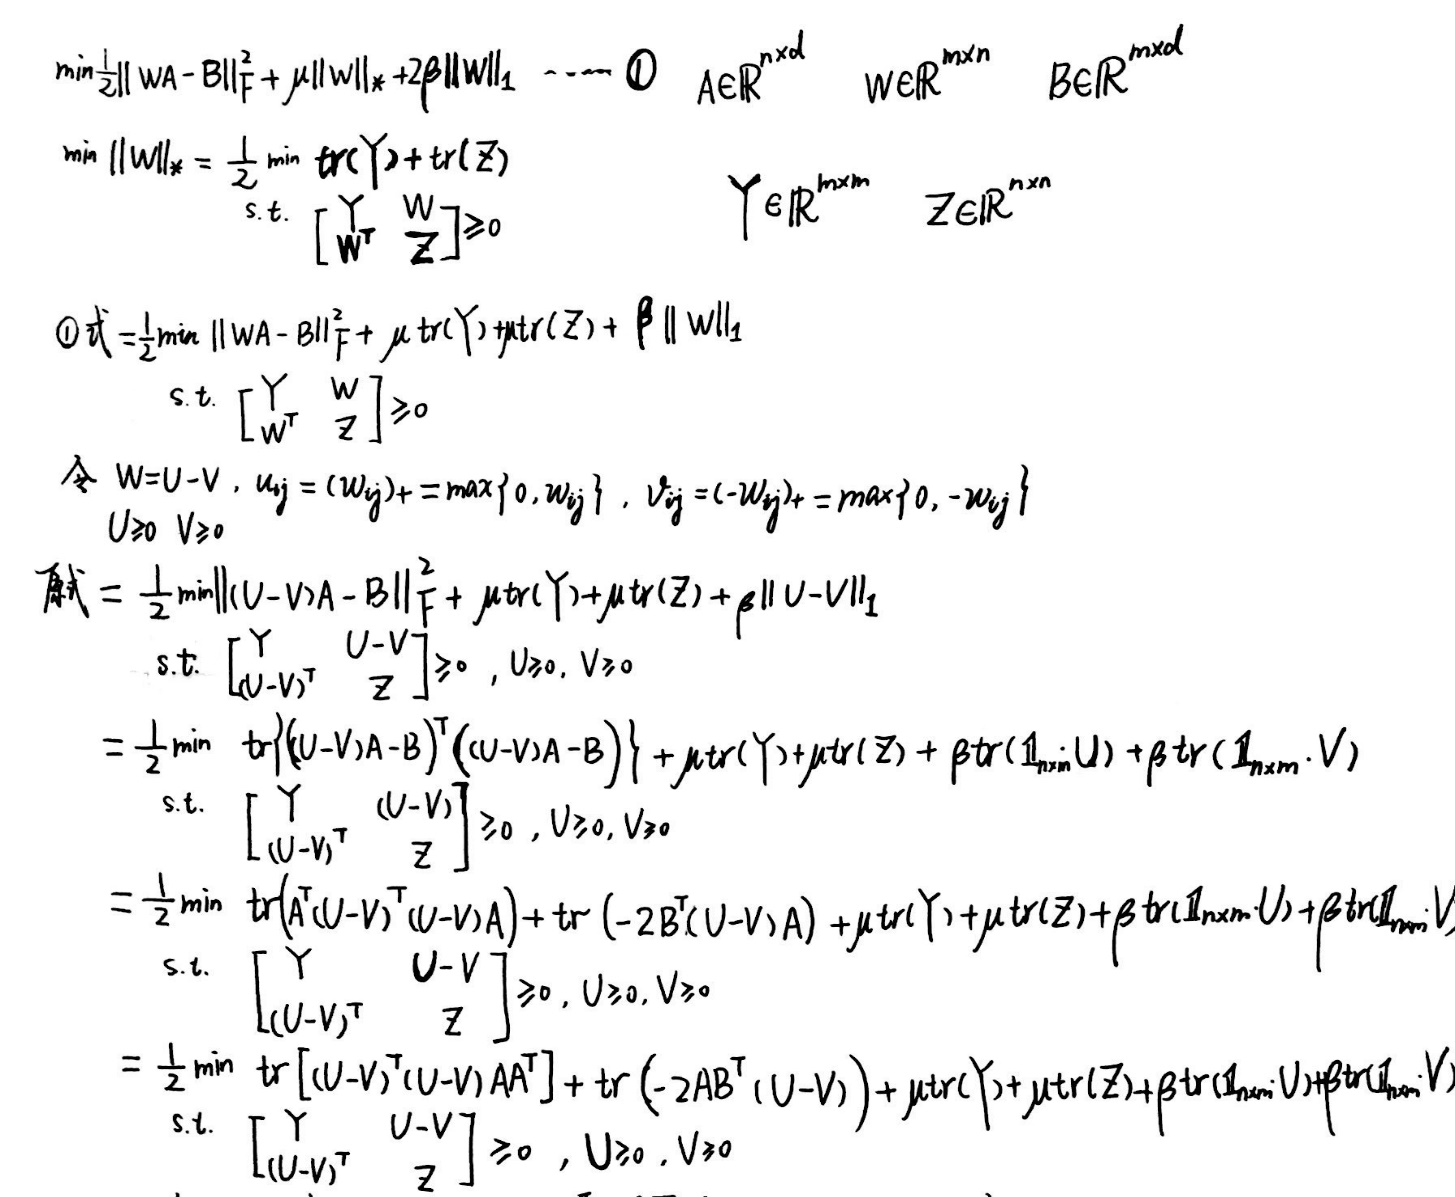 min ½||WA-B||²_F + μ||W||_* + 2β||W||₁ ····— ① A∈ℝ^{n×d} W∈ℝ^{m×n} B∈ℝ^{m×d}
min ||W||_* = ½ min tr(Y)+tr(Z)
s.t. [Y W; W^T Z] ≥ 0 Y∈ℝ^{m×m} Z∈ℝ^{n×n}
①式 = ½ min ||WA-B||²_F + μtr(Y)+μtr(Z) + β||W||₁
s.t. [Y W; W^T Z] ≥ 0
令 W=U-V, u_{ij} = (w_{ij})₊ = max{0, w_{ij}}, v_{ij} = (-w_{ij})₊ = max{0, -w_{ij}}
U≥0 V≥0
原式 = ½ min||(U-V)A-B||²_F + μtr(Y)+μtr(Z)+β||U-V||₁
s.t. [Y U-V; (U-V)^T Z] ≥ 0, U≥0, V≥0
= ½ min tr{((U-V)A-B)^T((U-V)A-B)} + μtr(Y)+μtr(Z) + βtr(𝟙_{n×m}·U) + βtr(𝟙_{n×m}·V)
s.t. [Y (U-V); (U-V)^T Z] ≥ 0, U≥0, V≥0
= ½ min tr(A^T(U-V)^T(U-V)A) + tr(-2B^T(U-V)A) + μtr(Y)+μtr(Z)+βtr(𝟙_{n×m}·U)+βtr(𝟙_{n×m}·V)
s.t. [Y U-V; (U-V)^T Z] ≥ 0, U≥0, V≥0
= ½ min tr[(U-V)^T(U-V)AA^T] + tr(-2AB^T(U-V)) + μtr(Y)+μtr(Z)+βtr(𝟙_{n×m}·U)+βtr(𝟙_{n×m}·V)
s.t. [Y U-V; (U-V)^T Z] ≥ 0, U≥0, V≥0